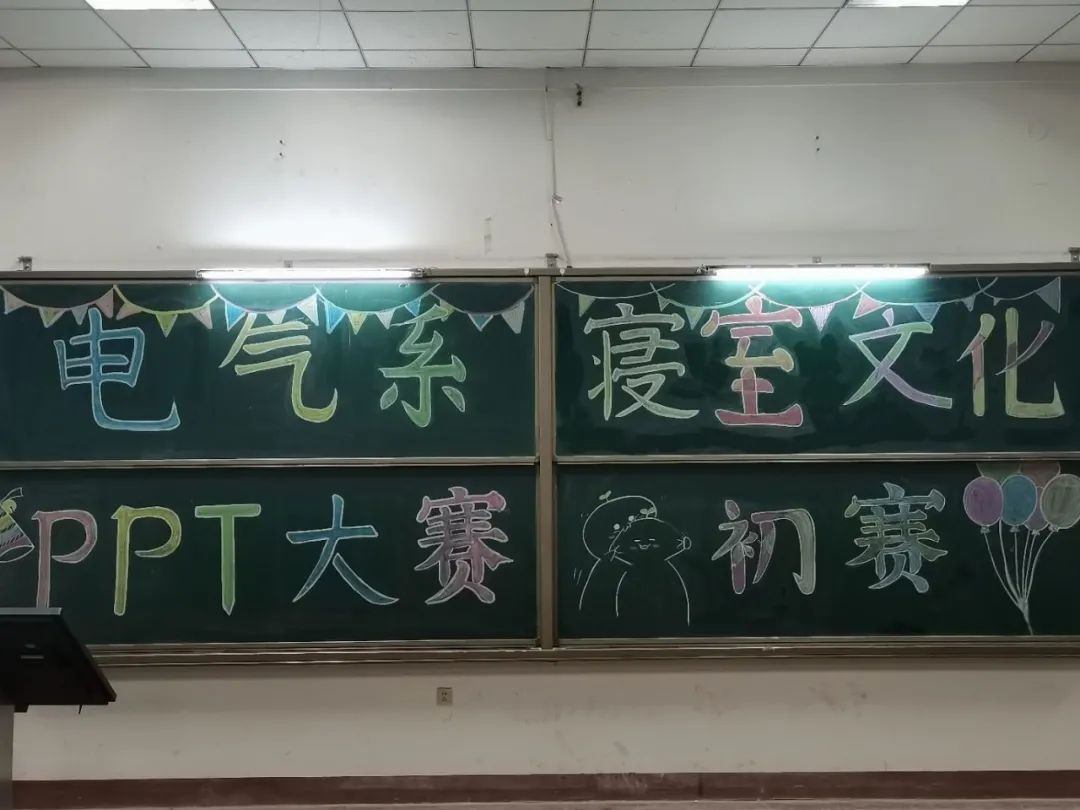 电气系寝室文化
PPT大赛初赛